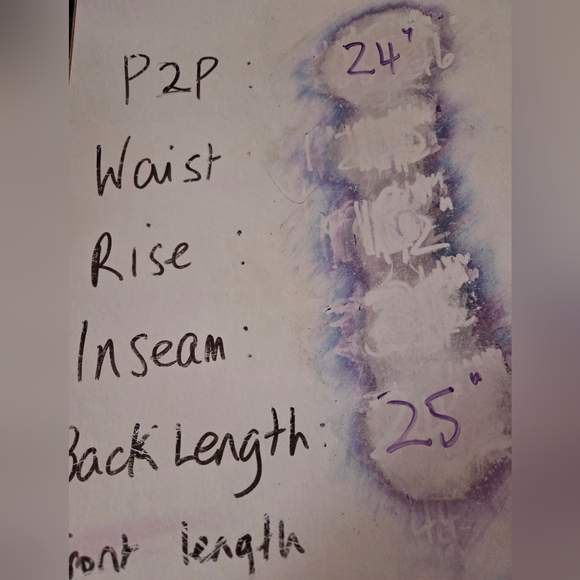 P2P : 24"
Waist :
Rise :
Inseam :
Back Length : 25"
Front length